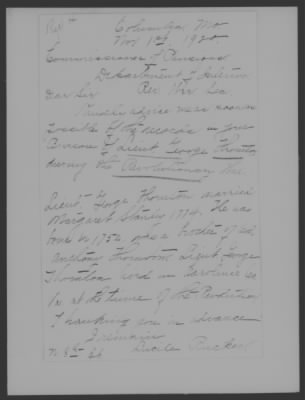 Columbia Mo
Nov 1st, 1920
Commissioner of Pensions
Department of Interior
Dear Sir Rev. War Sec.
Kindly advise me as soon as
possible of the records in your
Pensions of Lieut George Thornton
during the Revolutionary War.
Lieut. George Thornton married
Margaret Stanley 1774. He was
born in 1752 was a brother of Col
Anthony Thornton. Lieut. George
Thornton lived in Caroline Co
Va at the time of the Revolution
Thanking you in advance
I remain
Lucile Rucker